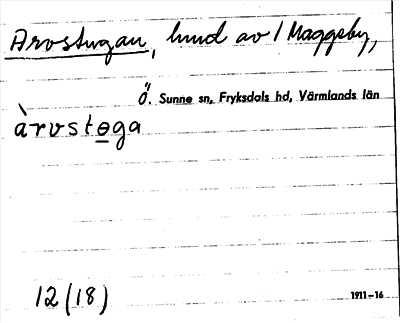 Arvstugan, lund av 1 Maggeby,
Ö. Sunne sn, Fryksdals hd, Värmlands län
àrvstoga
12 (18) 1911–16